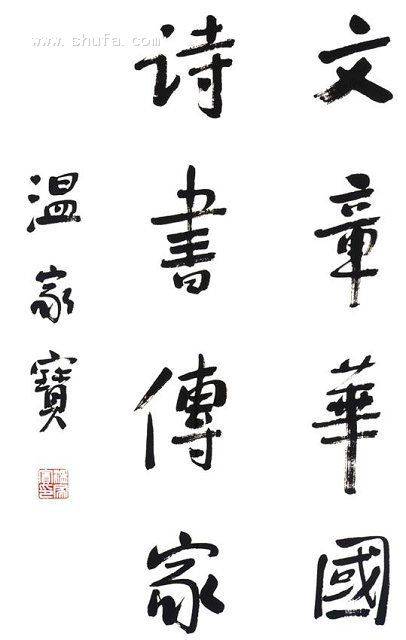 文章華國
诗書傳家
温家寶
www.shufa.com